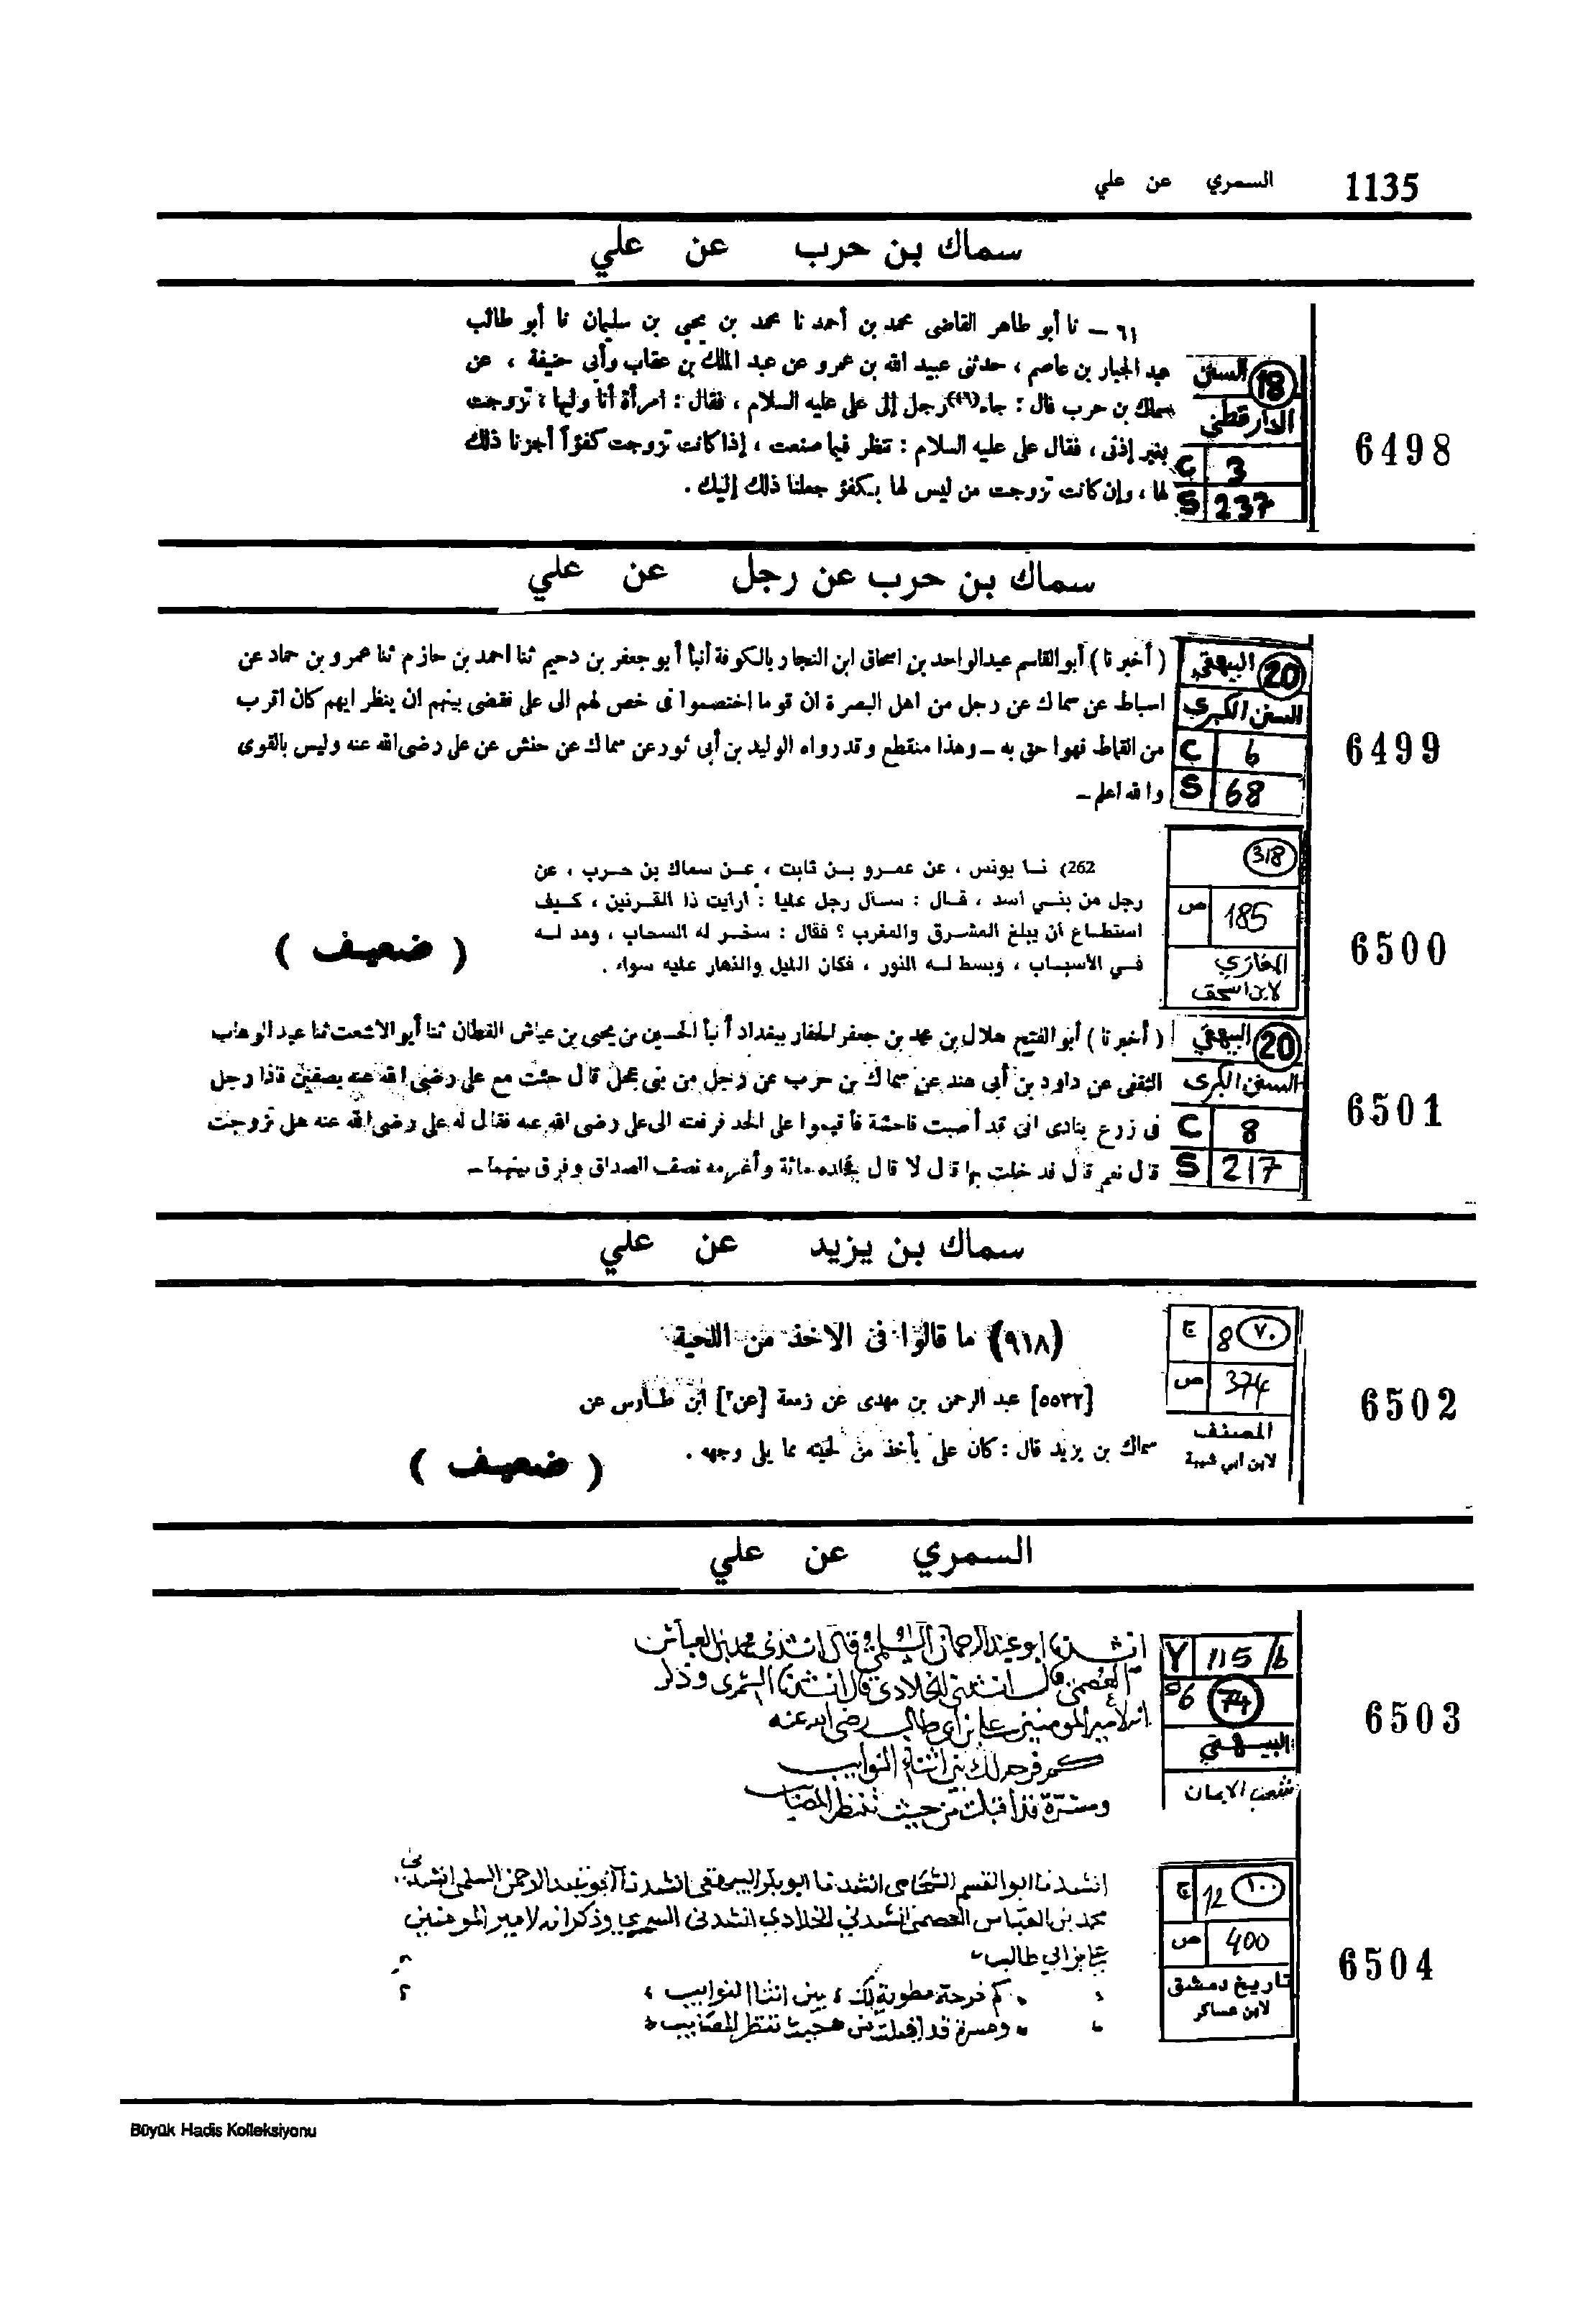 السمري عن علي 1135
سماك بن حرب عن علي
٦١ – نا أبو طاهر القاضى محمد بن أحمد نا محمد بن يحيى بن سليمان نا أبو طالب
عبد الجبار بن عاصم ، حدثنى عبيد الله بن عمرو عن عبد الملك بن عقاب وأبى حنيفة ، عن
سماك بن حرب قال : جاء رجل إلى على عليه السلام ، فقال : امرأة أنا وليها ، تزوجت
بغير إذنى ، فقال على عليه السلام : تنظر فيما صنعت ، إذا كانت تزوجت كفؤاً أجزنا ذلك
لها ، وإن كانت تزوجت من ليس لها بكفؤ جعلنا ذلك إليك .
السنن 18
الدارقطني
C 3
S 237
6498
سماك بن حرب عن رجل عن علي
( أخبرنا ) أبو القاسم عبدالواحد بن اسحاق ابن النجار بالكوفة أنبأ أبو جعفر بن دحيم ثنا احمد بن حازم ثنا عمرو بن حماد عن
اسباط عن سماك عن رجل من اهل البصرة ان قوما اختصموا فى خص لهم الى على فقضى بينهم ان ينظر ايهم كان اقرب
من القماط فهوا حق به – وهذا منقطع وقد رواه الوليد بن أبى ثور عن سماك عن حنش عن على رضى الله عنه وليس بالقوى
والله اعلم –
البيهقي 20
السنن الكبرى
C 6
S 68
6499
262) نا يونس ، عن عمرو بن ثابت ، عن سماك بن حرب ، عن
رجل من بني أسد ، قال : سأل رجل عليا : أرأيت ذا القرنين ، كيف
استطاع أن يبلغ المشرق والمغرب ؟ فقال : سخر له السحاب ، ومد له
في الأسباب ، وبسط له النور ، فكان الليل والنهار عليه سواء .
( ضعيف )
318
ص 185
المغازي
لابن اسحق
6500
( أخبرنا ) أبو الفتح هلال بن محمد بن جعفر الحفار ببغداد أنبأ الحسين بن يحيى بن عياش القطان ثنا أبو الاشعث ثنا عبد الوهاب
الثقفى عن داود بن أبى هند عن سماك بن حرب عن رجل من بنى عجل قال جئت مع على رضى الله عنه بصفين فاذا رجل
فى زرع ينادى انى قد أصبت فاحشة فأقيموا على الحد فرفعته الى على رضى الله عنه فقال له على رضى الله عنه هل تزوجت
قال نعم قال قد خلت بها قال لا قال فجلده مائة وأغرمه نصف الصداق وفرق بينهما –
البيهقي 20
السنن الكبرى
C 8
S 217
6501
سماك بن يزيد عن علي
(٩١٨) ما قالوا فى الاخذ من اللحية
[٥٥٣٢] عبد الرحمن بن مهدى عن زمعة [عن٢] ابن طاوس عن
سماك بن يزيد قال : كان على يأخذ من لحيته مما يلى وجهه .
( ضعيف )
ج 8 ٧٠
ص 374
المصنف
لابن ابي شيبة
6502
السمري عن علي
انشدنا ابو عبد الرحمان السلمي قال انشدنى محمد بن العباس
العصمي قال انشدني الخلادي قال انشدنا السمري وذكر
انه لامير المومنين علي بن ابي طالب رضي الله عنه
كم فرحة لك بين اثناء النوايب
ومسرة قد اقبلت من حيث تنتظر المصايب
Y 115/b
56 74
البيهقي
شعب الايمان
6503
انشدنا ابو القسم الشحامي انشدنا ابو بكر البيهقي انشدنا ابو عبد الرحمن السلمي انشدني
محمد بن العباس العصمي انشدني الخلادي انشدني السمري وذكر انه لامير المومنين
علي بن ابي طالب
كم فرحة مطوية لك بين اثنا النوايب
ومسرة قد اقبلت من حيث تنتظر المصايب
ج 12 ١٠٠
ص 400
تاريخ دمشق
لابن عساكر
6504
Büyük Hadis Kolleksiyonu